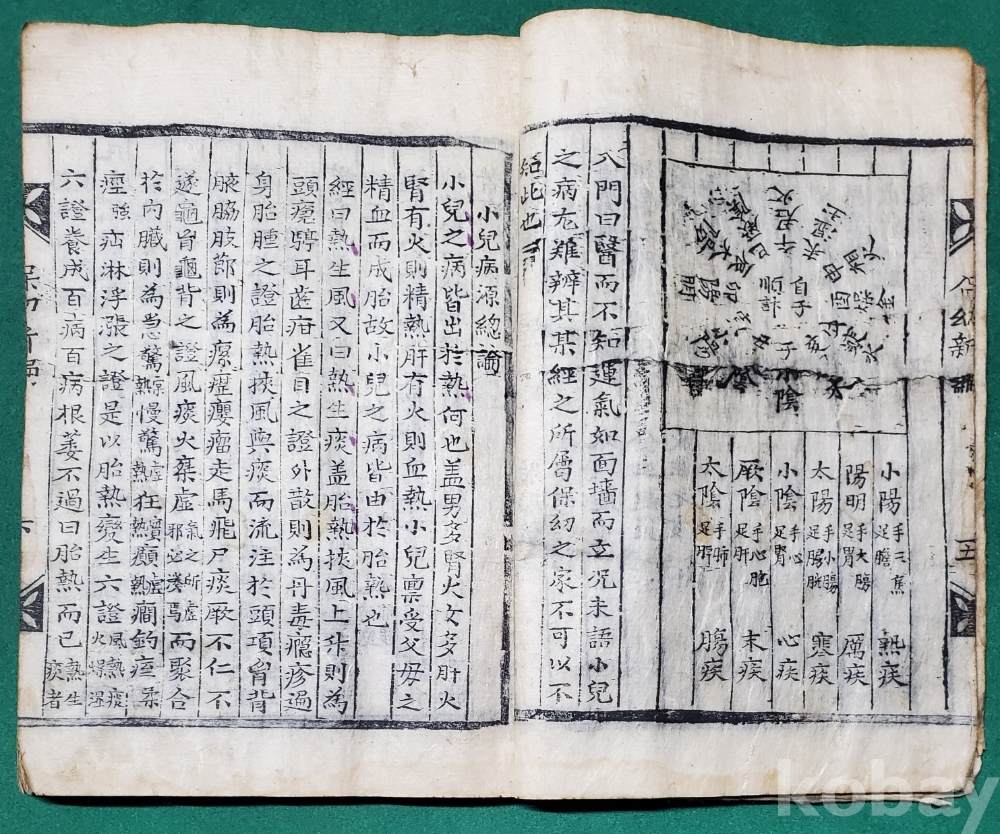 保幼新
五
小陽 手三焦 足膽 熱疾
陽明 手大膓 足胃 厲疾
太陽 手小膓 足膀胱 寒疾
小陰 手心 足腎 心疾
厥陰 手心胞 足肝 末疾
太陰 手肺 足脾 膓疾
順計
自子
小陰
八門曰醫而不知運氣如面墻而立况未語小兒
之病尤難辨其某經之所屬保幼之家不可以不
知此也
小兒病源總論
小兒之病皆出於熱何也盖男多腎火女多肝火
腎有火則精熱肝有火則血熱小兒禀受父母之
精血而成胎故小兒之病皆由於胎熱也
經曰熱生風又曰熱生痰盖胎熱挾風上升則為
頭瘡聤耳齒疳雀目之證外散則為丹毒癮疹遍
身胎腫之證胎熱挾風與痰而流注於頭項胷背
腋脇肢節則為瘰癧癭瘤走馬飛尸痰厥不仁不
遂龜胷龜背之證風痰火乘虛氣之所虛邪必湊焉而聚合
於內臟則為急驚熱慢驚虛熱狂熱癲熱癎釣痙柔
痙強疝淋浮漲之證是以胎熱變生六證風熱痰火燥濕
六證養成百病百病根萎不過曰胎熱而已熱生痰者
kobay